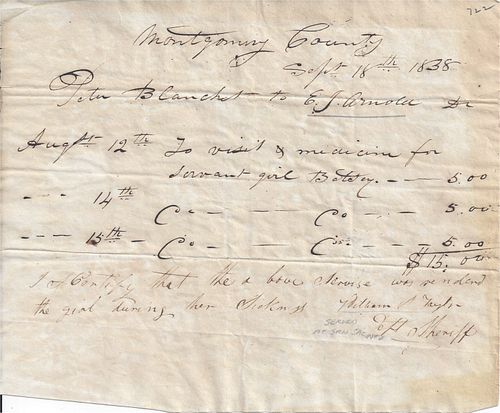 722
Montgomery County
Sept 18th 1838
Peter Blanchet to E. J. Arnold Dr
Augst 12th To visit & medicine for
servant girl Betsey. — — 5.00
- - - 14th Do — — — Do — — 5.00
- - - 15th Do — — — Do — — 5.00
$15.00
I do Certify that the above Service was rendered
the girl during her Sickness William S. Taylor
Sheriff
SERVED
AT SAN JACINTO